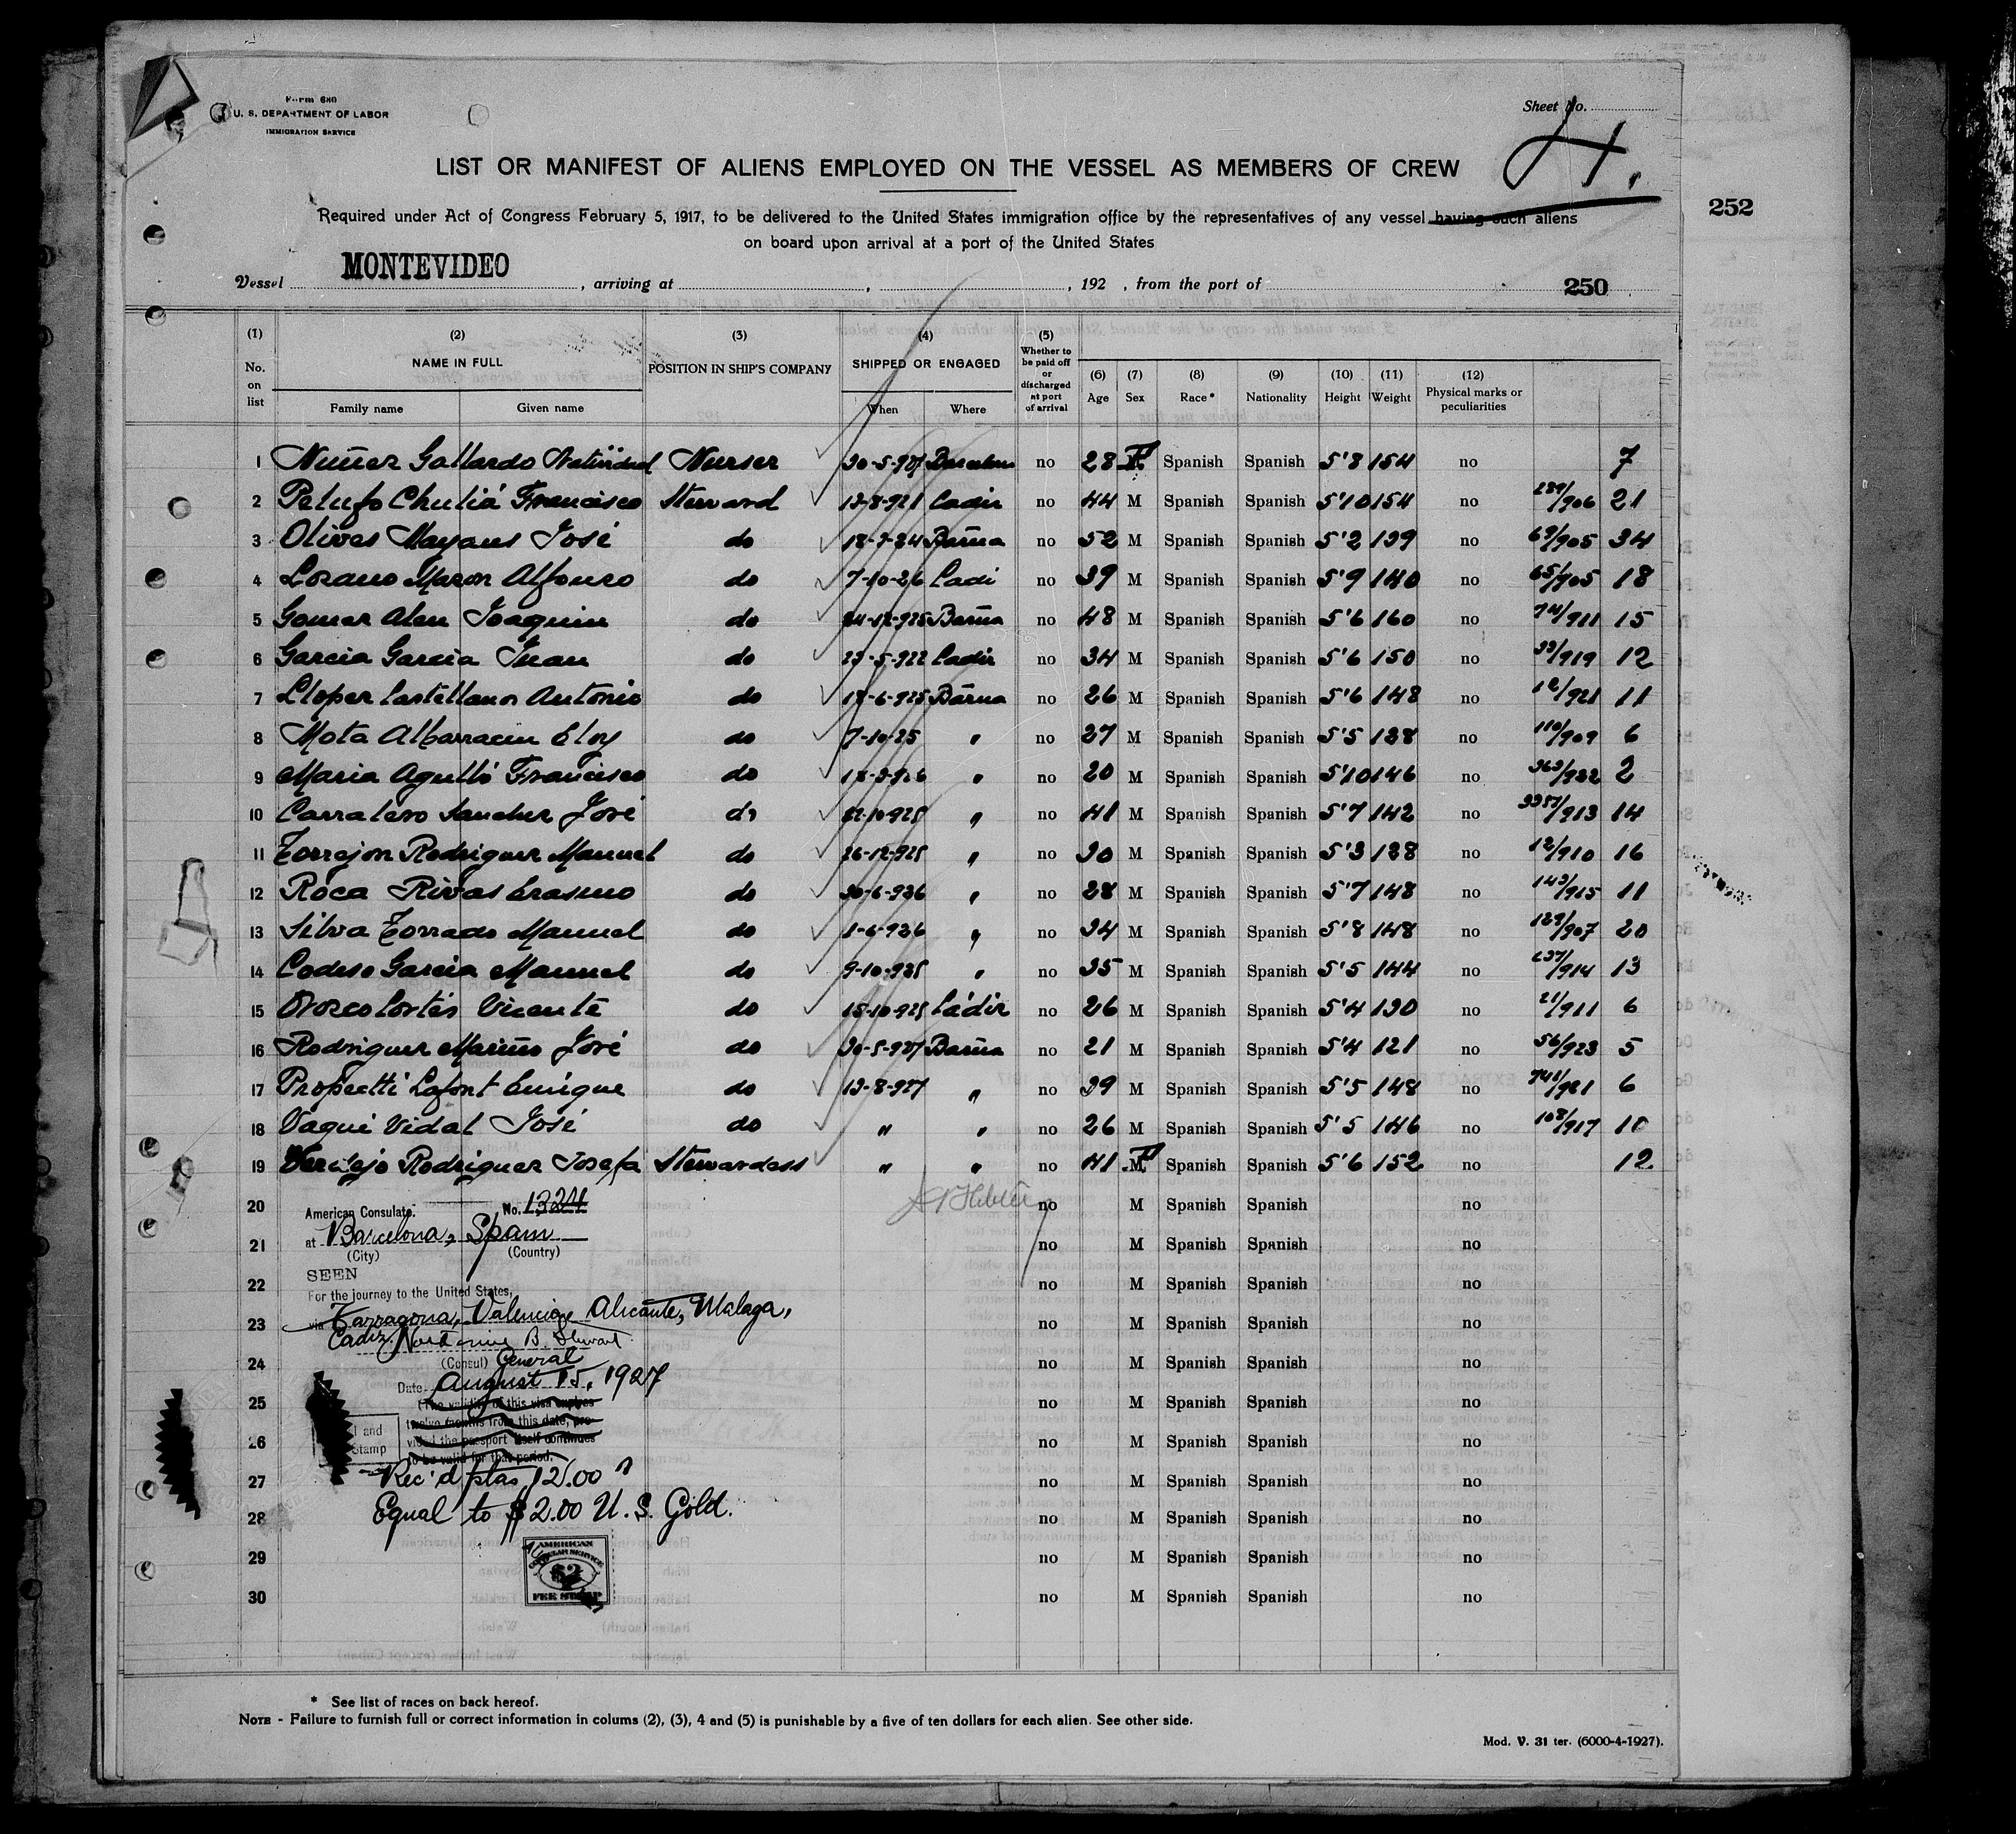 Form 680
U. S. DEPARTMENT OF LABOR
IMMIGRATION SERVICE
Sheet No.
4.
LIST OR MANIFEST OF ALIENS EMPLOYED ON THE VESSEL AS MEMBERS OF CREW
Required under Act of Congress February 5, 1917, to be delivered to the United States immigration office by the representatives of any vessel having such aliens
on board upon arrival at a port of the United States
252
Vessel MONTEVIDEO , arriving at , , 192 , from the port of 250
(1) No. on list (2) NAME IN FULL Family name Given name (3) POSITION IN SHIP'S COMPANY (4) SHIPPED OR ENGAGED When Where (5) Whether to be paid off or discharged at port of arrival (6) Age (7) Sex (8) Race* (9) Nationality (10) Height (11) Weight (12) Physical marks or peculiarities
1 Nuñez Gallardo Natividad Nurser 30-5-927 Barcelona no 28 F Spanish Spanish 5'8 154 no 7
2 Petufo Chuliá Francisco Steward 13-8-921 Cadiz no 44 M Spanish Spanish 5'10 154 no 289/906 21
3 Olives Mayans José do 18-3-24 Barña no 52 M Spanish Spanish 5'2 139 no 69/905 34
4 Lozano Mazon Alfonso do 7-10-26 Cadi no 39 M Spanish Spanish 5'9 140 no 65/905 18
5 Gomez Alen Joaquin do 24-12-925 Barña no 48 M Spanish Spanish 5'6 160 no 74/911 15
6 Garcia Garcia Juan do 23-5-922 Cadiz no 34 M Spanish Spanish 5'6 150 no 33/919 12
7 Llopez Castellanos Antonio do 18-6-925 Barña no 26 M Spanish Spanish 5'6 148 no 18/921 11
8 Mota Albarracin Eloy do 7-10-25 " no 27 M Spanish Spanish 5'5 138 no 110/909 6
9 Maria Agulló Francisco do 18-3-926 " no 20 M Spanish Spanish 5'10 146 no 363/922 2
10 Carralero Sanchez José do 22-10-925 " no 41 M Spanish Spanish 5'7 142 no /913 14
11 Torrejon Rodriguez Manuel do 26-12-925 " no 30 M Spanish Spanish 5'3 138 no 12/910 16
12 Roca Rivas Erasmo do 30-6-926 " no 28 M Spanish Spanish 5'7 148 no 143/915 11
13 Silva Torrado Manuel do 1-6-926 " no 34 M Spanish Spanish 5'8 148 no 129/907 20
14 Codeso Garcia Manuel do 9-10-925 " no 35 M Spanish Spanish 5'5 144 no 237/914 13
15 Orozco Cortés Vicente do 15-10-925 Cádiz no 26 M Spanish Spanish 5'4 130 no 21/911 6
16 Rodriguez Mariño José do 30-5-927 Barña no 21 M Spanish Spanish 5'4 121 no 56/923 5
17 Propretti Lafont Enrique do 13-8-927 " no 39 M Spanish Spanish 5'5 148 no 741/921 6
18 Vaqué Vidal José do " " no 26 M Spanish Spanish 5'5 146 no 108/917 10
19 Verdejo Rodriguez Josefa Stewardess " " no 41 F Spanish Spanish 5'6 152 no 12
20 no M Spanish Spanish no
American Consulate. No. 1324
21 no M Spanish Spanish no
at Barcelona, Spain
(City) (Country)
22 no M Spanish Spanish no
SEEN
For the journey to the United States,
23 no M Spanish Spanish no
via Tarragona, Valencia, Alicante, Malaga,
Cadiz, B. Stewart
24 no M Spanish Spanish no
(Consul) General
Date August 15, 1927
25 no M Spanish Spanish no
(The validity of this visa expires
twelve months from this date, pro-
26 no M Spanish Spanish no
vided the passport itself continues
to be valid for that period.
l and
Stamp
27 no M Spanish Spanish no
Rec'd ptas 12.00
28 no M Spanish Spanish no
Equal to $2.00 U. S. Gold.
29 no M Spanish Spanish no
AMERICAN
CONSULAR SERVICE
$2
FEE STAMP
30 no M Spanish Spanish no
* See list of races on back hereof.
NOTE - Failure to furnish full or correct information in colums (2), (3), 4 and (5) is punishable by a five of ten dollars for each alien. See other side.
Mod. V. 31 ter. (6000-4-1927).